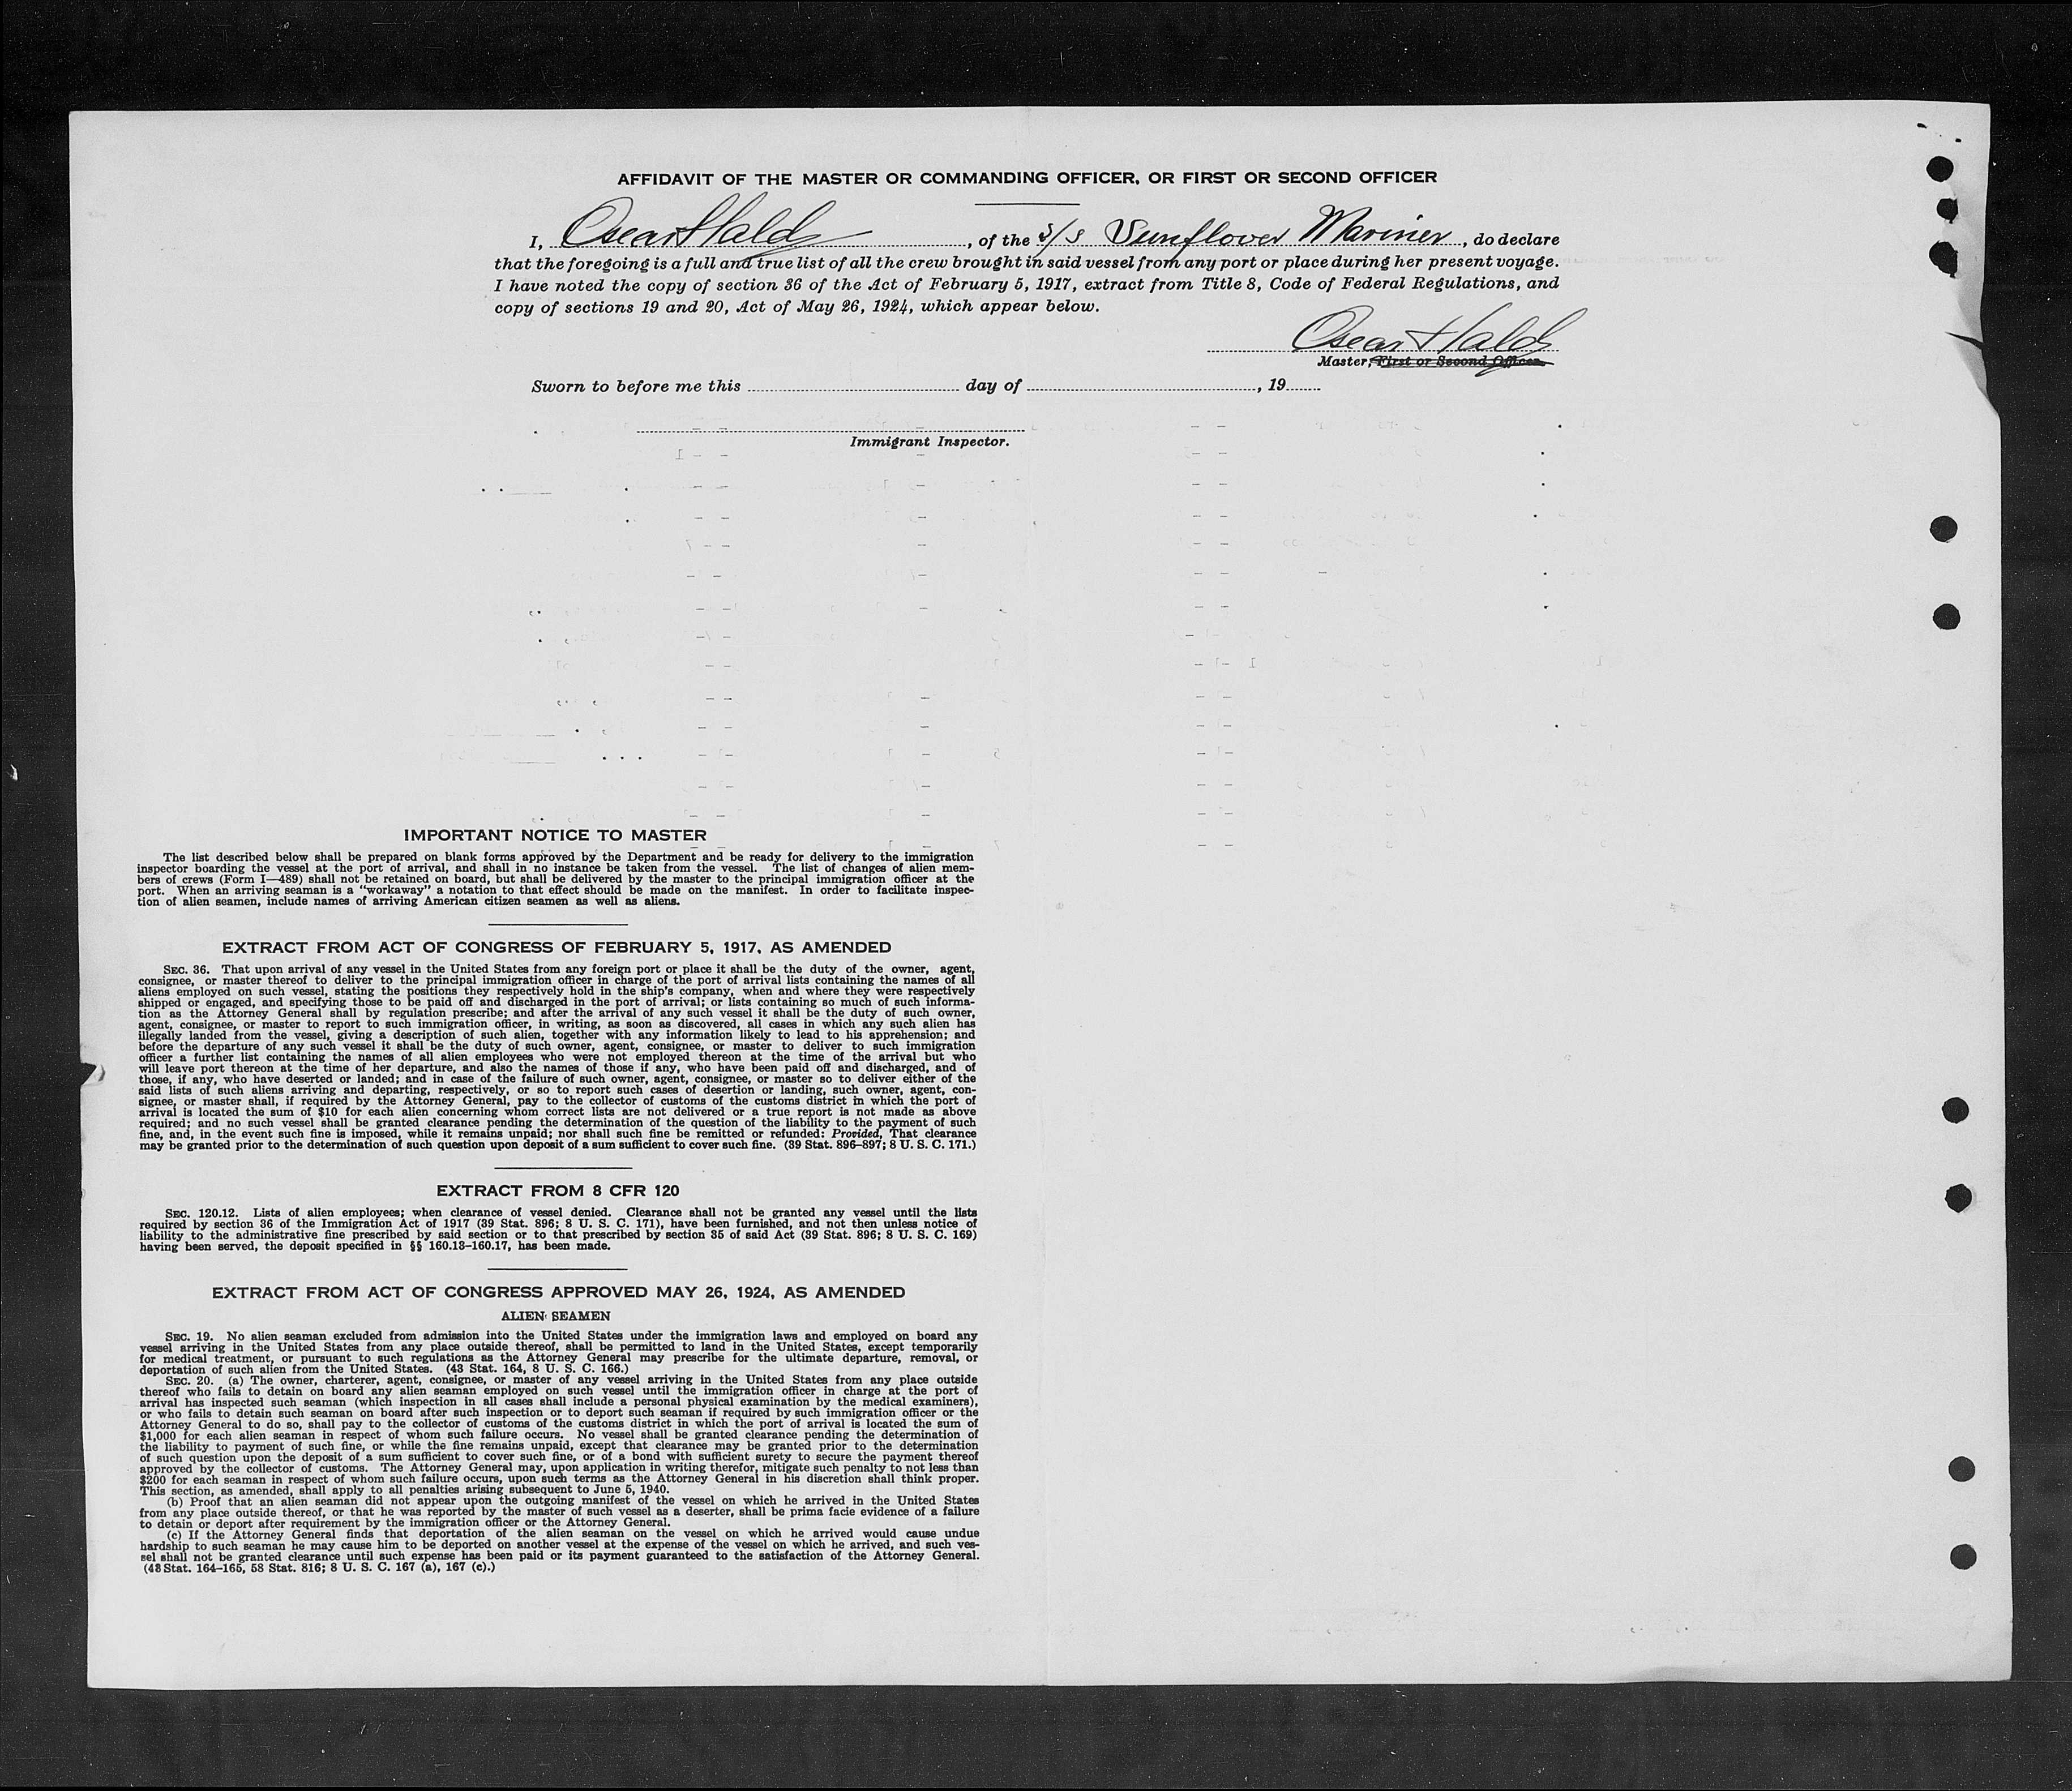 AFFIDAVIT OF THE MASTER OR COMMANDING OFFICER, OR FIRST OR SECOND OFFICER
I, Oscar Hald, of the S/S Sunflower Mariner, do declare
that the foregoing is a full and true list of all the crew brought in said vessel from any port or place during her present voyage.
I have noted the copy of section 36 of the Act of February 5, 1917, extract from Title 8, Code of Federal Regulations, and
copy of sections 19 and 20, Act of May 26, 1924, which appear below.
Oscar Hald
Master, First or Second Officer.
Sworn to before me this day of , 19
Immigrant Inspector.
IMPORTANT NOTICE TO MASTER
The list described below shall be prepared on blank forms approved by the Department and be ready for delivery to the immigration
inspector boarding the vessel at the port of arrival, and shall in no instance be taken from the vessel. The list of changes of alien mem-
bers of crews (Form I—489) shall not be retained on board, but shall be delivered by the master to the principal immigration officer at the
port. When an arriving seaman is a "workaway" a notation to that effect should be made on the manifest. In order to facilitate inspec-
tion of alien seamen, include names of arriving American citizen seamen as well as aliens.
EXTRACT FROM ACT OF CONGRESS OF FEBRUARY 5, 1917, AS AMENDED
SEC. 36. That upon arrival of any vessel in the United States from any foreign port or place it shall be the duty of the owner, agent,
consignee, or master thereof to deliver to the principal immigration officer in charge of the port of arrival lists containing the names of all
aliens employed on such vessel, stating the positions they respectively hold in the ship's company, when and where they were respectively
shipped or engaged, and specifying those to be paid off and discharged in the port of arrival; or lists containing so much of such informa-
tion as the Attorney General shall by regulation prescribe; and after the arrival of any such vessel it shall be the duty of such owner,
agent, consignee, or master to report to such immigration officer, in writing, as soon as discovered, all cases in which any such alien has
illegally landed from the vessel, giving a description of such alien, together with any information likely to lead to his apprehension; and
before the departure of any such vessel it shall be the duty of such owner, agent, consignee, or master to deliver to such immigration
officer a further list containing the names of all alien employees who were not employed thereon at the time of the arrival but who
will leave port thereon at the time of her departure, and also the names of those if any, who have been paid off and discharged, and of
those, if any, who have deserted or landed; and in case of the failure of such owner, agent, consignee, or master so to deliver either of the
said lists of such aliens arriving and departing, respectively, or so to report such cases of desertion or landing, such owner, agent, con-
signee, or master shall, if required by the Attorney General, pay to the collector of customs of the customs district in which the port of
arrival is located the sum of $10 for each alien concerning whom correct lists are not delivered or a true report is not made as above
required; and no such vessel shall be granted clearance pending the determination of the question of the liability to the payment of such
fine, and, in the event such fine is imposed, while it remains unpaid; nor shall such fine be remitted or refunded: Provided, That clearance
may be granted prior to the determination of such question upon deposit of a sum sufficient to cover such fine. (39 Stat. 896–897; 8 U. S. C. 171.)
EXTRACT FROM 8 CFR 120
SEC. 120.12. Lists of alien employees; when clearance of vessel denied. Clearance shall not be granted any vessel until the lists
required by section 36 of the Immigration Act of 1917 (39 Stat. 896; 8 U. S. C. 171), have been furnished, and not then unless notice of
liability to the administrative fine prescribed by said section or to that prescribed by section 35 of said Act (39 Stat. 896; 8 U. S. C. 169)
having been served, the deposit specified in §§ 160.13–160.17, has been made.
EXTRACT FROM ACT OF CONGRESS APPROVED MAY 26, 1924, AS AMENDED
ALIEN SEAMEN
SEC. 19. No alien seaman excluded from admission into the United States under the immigration laws and employed on board any
vessel arriving in the United States from any place outside thereof, shall be permitted to land in the United States, except temporarily
for medical treatment, or pursuant to such regulations as the Attorney General may prescribe for the ultimate departure, removal, or
deportation of such alien from the United States. (43 Stat. 164, 8 U. S. C. 166.)
SEC. 20. (a) The owner, charterer, agent, consignee, or master of any vessel arriving in the United States from any place outside
thereof who fails to detain on board any alien seaman employed on such vessel until the immigration officer in charge at the port of
arrival has inspected such seaman (which inspection in all cases shall include a personal physical examination by the medical examiners),
or who fails to detain such seaman on board after such inspection or to deport such seaman if required by such immigration officer or the
Attorney General to do so, shall pay to the collector of customs of the customs district in which the port of arrival is located the sum of
$1,000 for each alien seaman in respect of whom such failure occurs. No vessel shall be granted clearance pending the determination of
the liability to payment of such fine, or while the fine remains unpaid, except that clearance may be granted prior to the determination
of such question upon the deposit of a sum sufficient to cover such fine, or of a bond with sufficient surety to secure the payment thereof
approved by the collector of customs. The Attorney General may, upon application in writing therefor, mitigate such penalty to not less than
$200 for each seaman in respect of whom such failure occurs, upon such terms as the Attorney General in his discretion shall think proper.
This section, as amended, shall apply to all penalties arising subsequent to June 5, 1940.
(b) Proof that an alien seaman did not appear upon the outgoing manifest of the vessel on which he arrived in the United States
from any place outside thereof, or that he was reported by the master of such vessel as a deserter, shall be prima facie evidence of a failure
to detain or deport after requirement by the immigration officer or the Attorney General.
(c) If the Attorney General finds that deportation of the alien seaman on the vessel on which he arrived would cause undue
hardship to such seaman he may cause him to be deported on another vessel at the expense of the vessel on which he arrived, and such ves-
sel shall not be granted clearance until such expense has been paid or its payment guaranteed to the satisfaction of the Attorney General.
(43 Stat. 164–165, 58 Stat. 816; 8 U. S. C. 167 (a), 167 (c).)